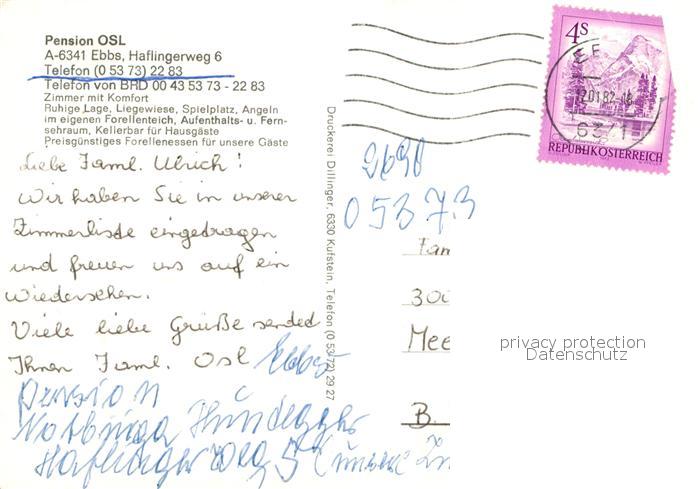 Pension OSL
A-6341 Ebbs, Haflingerweg 6
Telefon (0 53 73) 22 83
Telefon von BRD 00 43 53 73 - 22 83
Zimmer mit Komfort
Ruhige Lage, Liegewiese, Spielplatz, Angeln
im eigenen Forellenteich, Aufenthalts- u. Fern-
sehraum, Kellerbar für Hausgäste
Preisgünstiges Forellenessen für unsere Gäste
Liebe Faml. Ulrich!
Wir haben Sie in unserer
Zimmerliste eingetragen
und freuen uns auf ein
Wiedersehen.
Viele liebe Grüße sended
Ihnen Faml. Osl
Ebbs
Pension
Notburga Hundegger
Haflingerweg 5 (unsere
Druckerei Dillinger, 6330 Kufstein, Telefon (0 53 72) 29 27
05373
Fam
300
Mee
B.
4S
6371
REPUBLIK ÖSTERREICH
privacy protection
Datenschutz